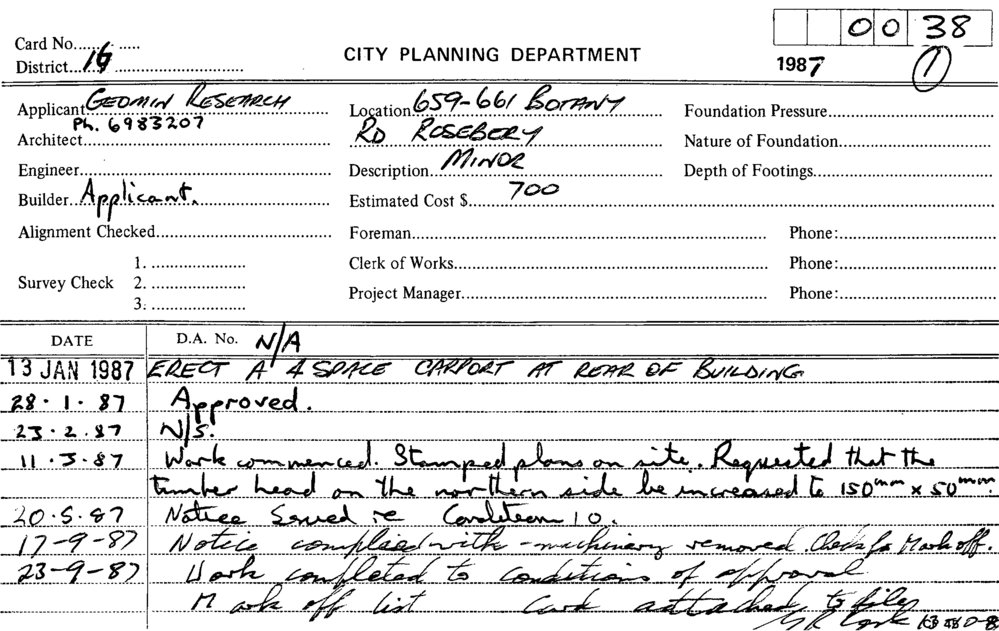 0 0 38
Card No.
CITY PLANNING DEPARTMENT
District 16
1987
1
Applicant GEOMIN RESEARCH
Location 659-661 BOTANY
Foundation Pressure
Ph. 6983207
Architect
RD ROSEBERY
Nature of Foundation
Engineer
Description MINOR
Depth of Footings
Builder Applicant.
Estimated Cost $ 700
Alignment Checked
Foreman
Phone:
Survey Check
1.
2.
3.
Clerk of Works
Phone:
Project Manager
Phone:
DATE
D.A. No. N/A
13 JAN 1987 ERECT A 4 SPACE CARPORT AT REAR OF BUILDING
28.1.87 Approved.
23.2.87 N/S.
11.3.87 Work commenced. Stamped plans on site. Requested that the
timber head on the northern side be increased to 150mm x 50mm.
20.5.87 Notice Served re Condition 10.
17-9-87 Notice complied with - machinery removed. Check for Mark off.
23-9-87 Work completed to conditions of approval
Mark off list Card attached to file